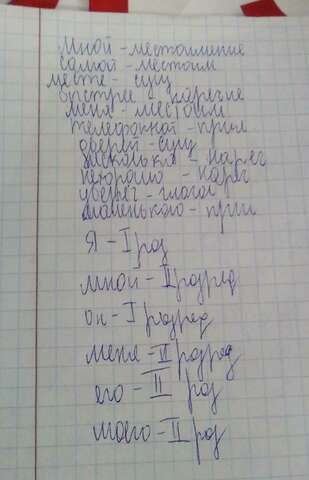 мной - местоимение
самой - местоим
месте - сущ
быстрее - наречие
меня - местоим
телефонной - прил
дверей - сущ
насколько - нареч
нехорошо - нареч
уверен - глагол
маленького - прил
Я - I раз
мной - II разряд
он - I разряд
меня - II разряд
его - II раз
моего - II раз